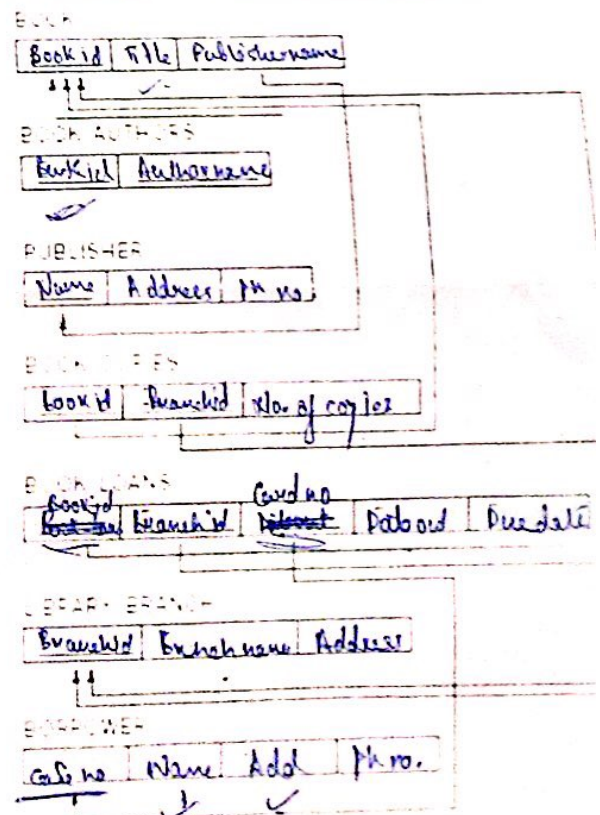 BOOK
Book id Title Publishername
BOOK AUTHORS
Bookid Authorname
PUBLISHER
Name Address Ph no.
BOOK COPIES
bookid Branchid No. of copies
BOOK LOANS
Bookid Card no
Branchid Dateout Duedate
LIBRARY BRANCH
Branchid Branchname Address
BORROWER
no Name Add Ph no.